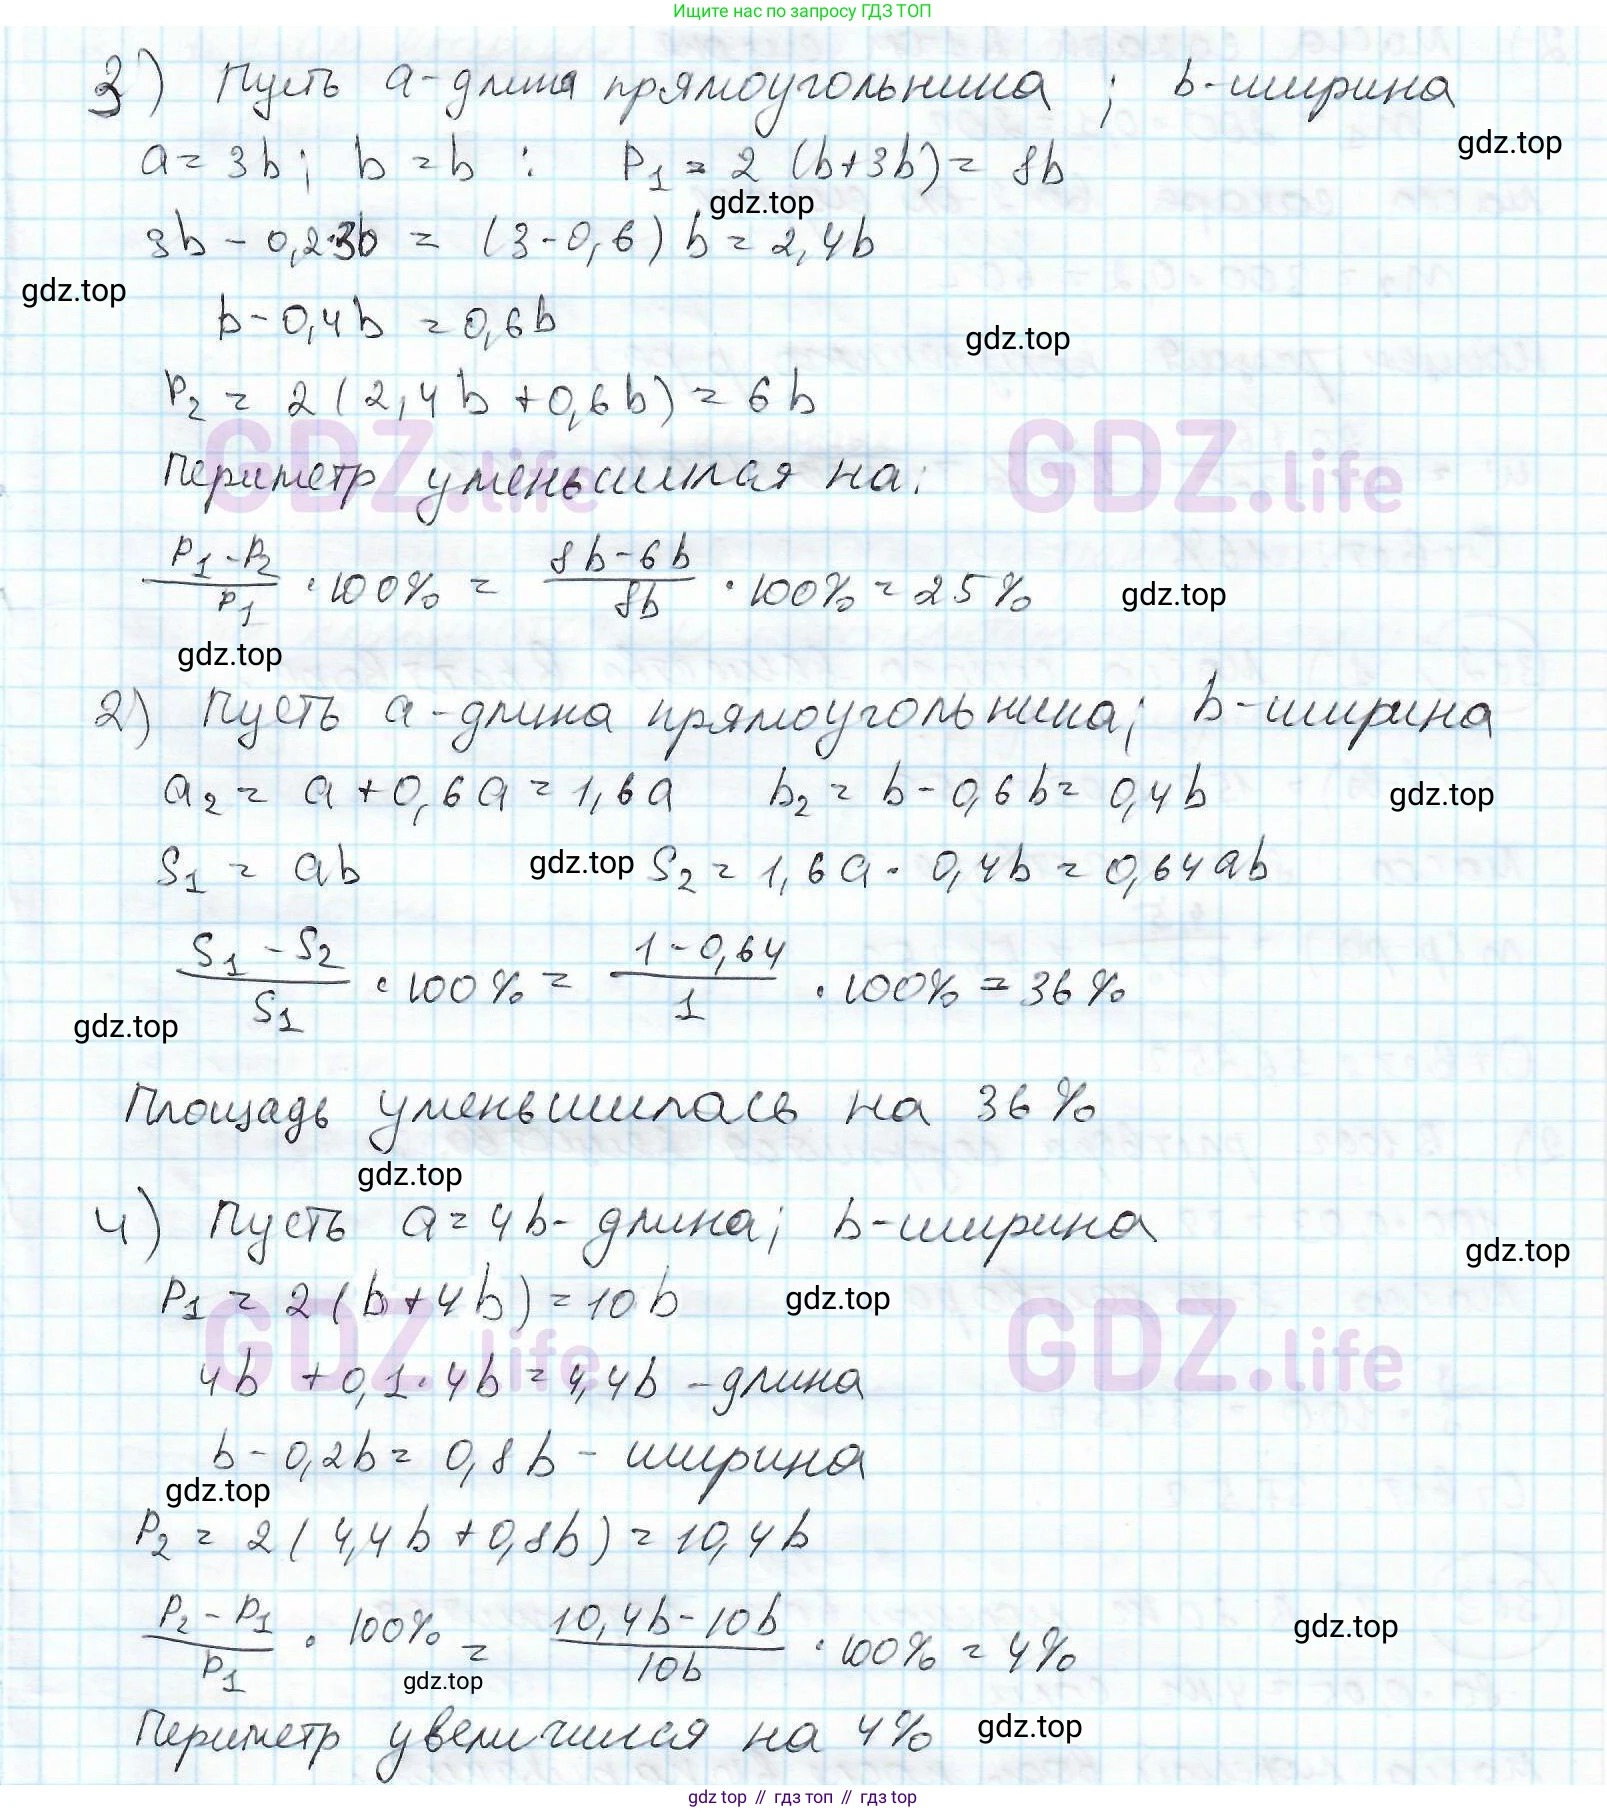 Ищите нас по запросу ГДЗ ТОП
3) Пусть a - длина прямоугольника; b - ширина
gdz.top
a = 3b; b = b : P₁ = 2 (b+3b) = 8b
gdz.top
3b - 0,2·3b = (3-0,6) b = 2,4b
gdz.top
b - 0,4b = 0,6b
gdz.top
P₂ = 2 (2,4b + 0,6b) = 6b
GDZ.life GDZ.life
Периметр уменьшился на:
(P₁ - P₂)/P₁ · 100% = (8b - 6b)/8b · 100% = 25%
gdz.top
gdz.top
2) Пусть a - длина прямоугольника; b - ширина
a₂ = a + 0,6a = 1,6a b₂ = b - 0,6b = 0,4b
gdz.top
S₁ = ab gdz.top S₂ = 1,6a · 0,4b = 0,64ab
(S₁ - S₂)/S₁ · 100% = (1 - 0,64)/1 · 100% = 36%
gdz.top
Площадь уменьшилась на 36%
gdz.top
4) Пусть a = 4b - длина; b - ширина
gdz.top
P₁ = 2 (b + 4b) = 10b gdz.top
GDZ.life GDZ.life
4b + 0,1·4b = 4,4b - длина
b - 0,2b = 0,8b - ширина
gdz.top
P₂ = 2 (4,4b + 0,8b) = 10,4b
(P₂ - P₁)/P₁ · 100% = (10,4b - 10b)/10b · 100% = 4%
gdz.top
gdz.top
Периметр увеличился на 4% gdz.top
gdz top // гдз топ // гдз top